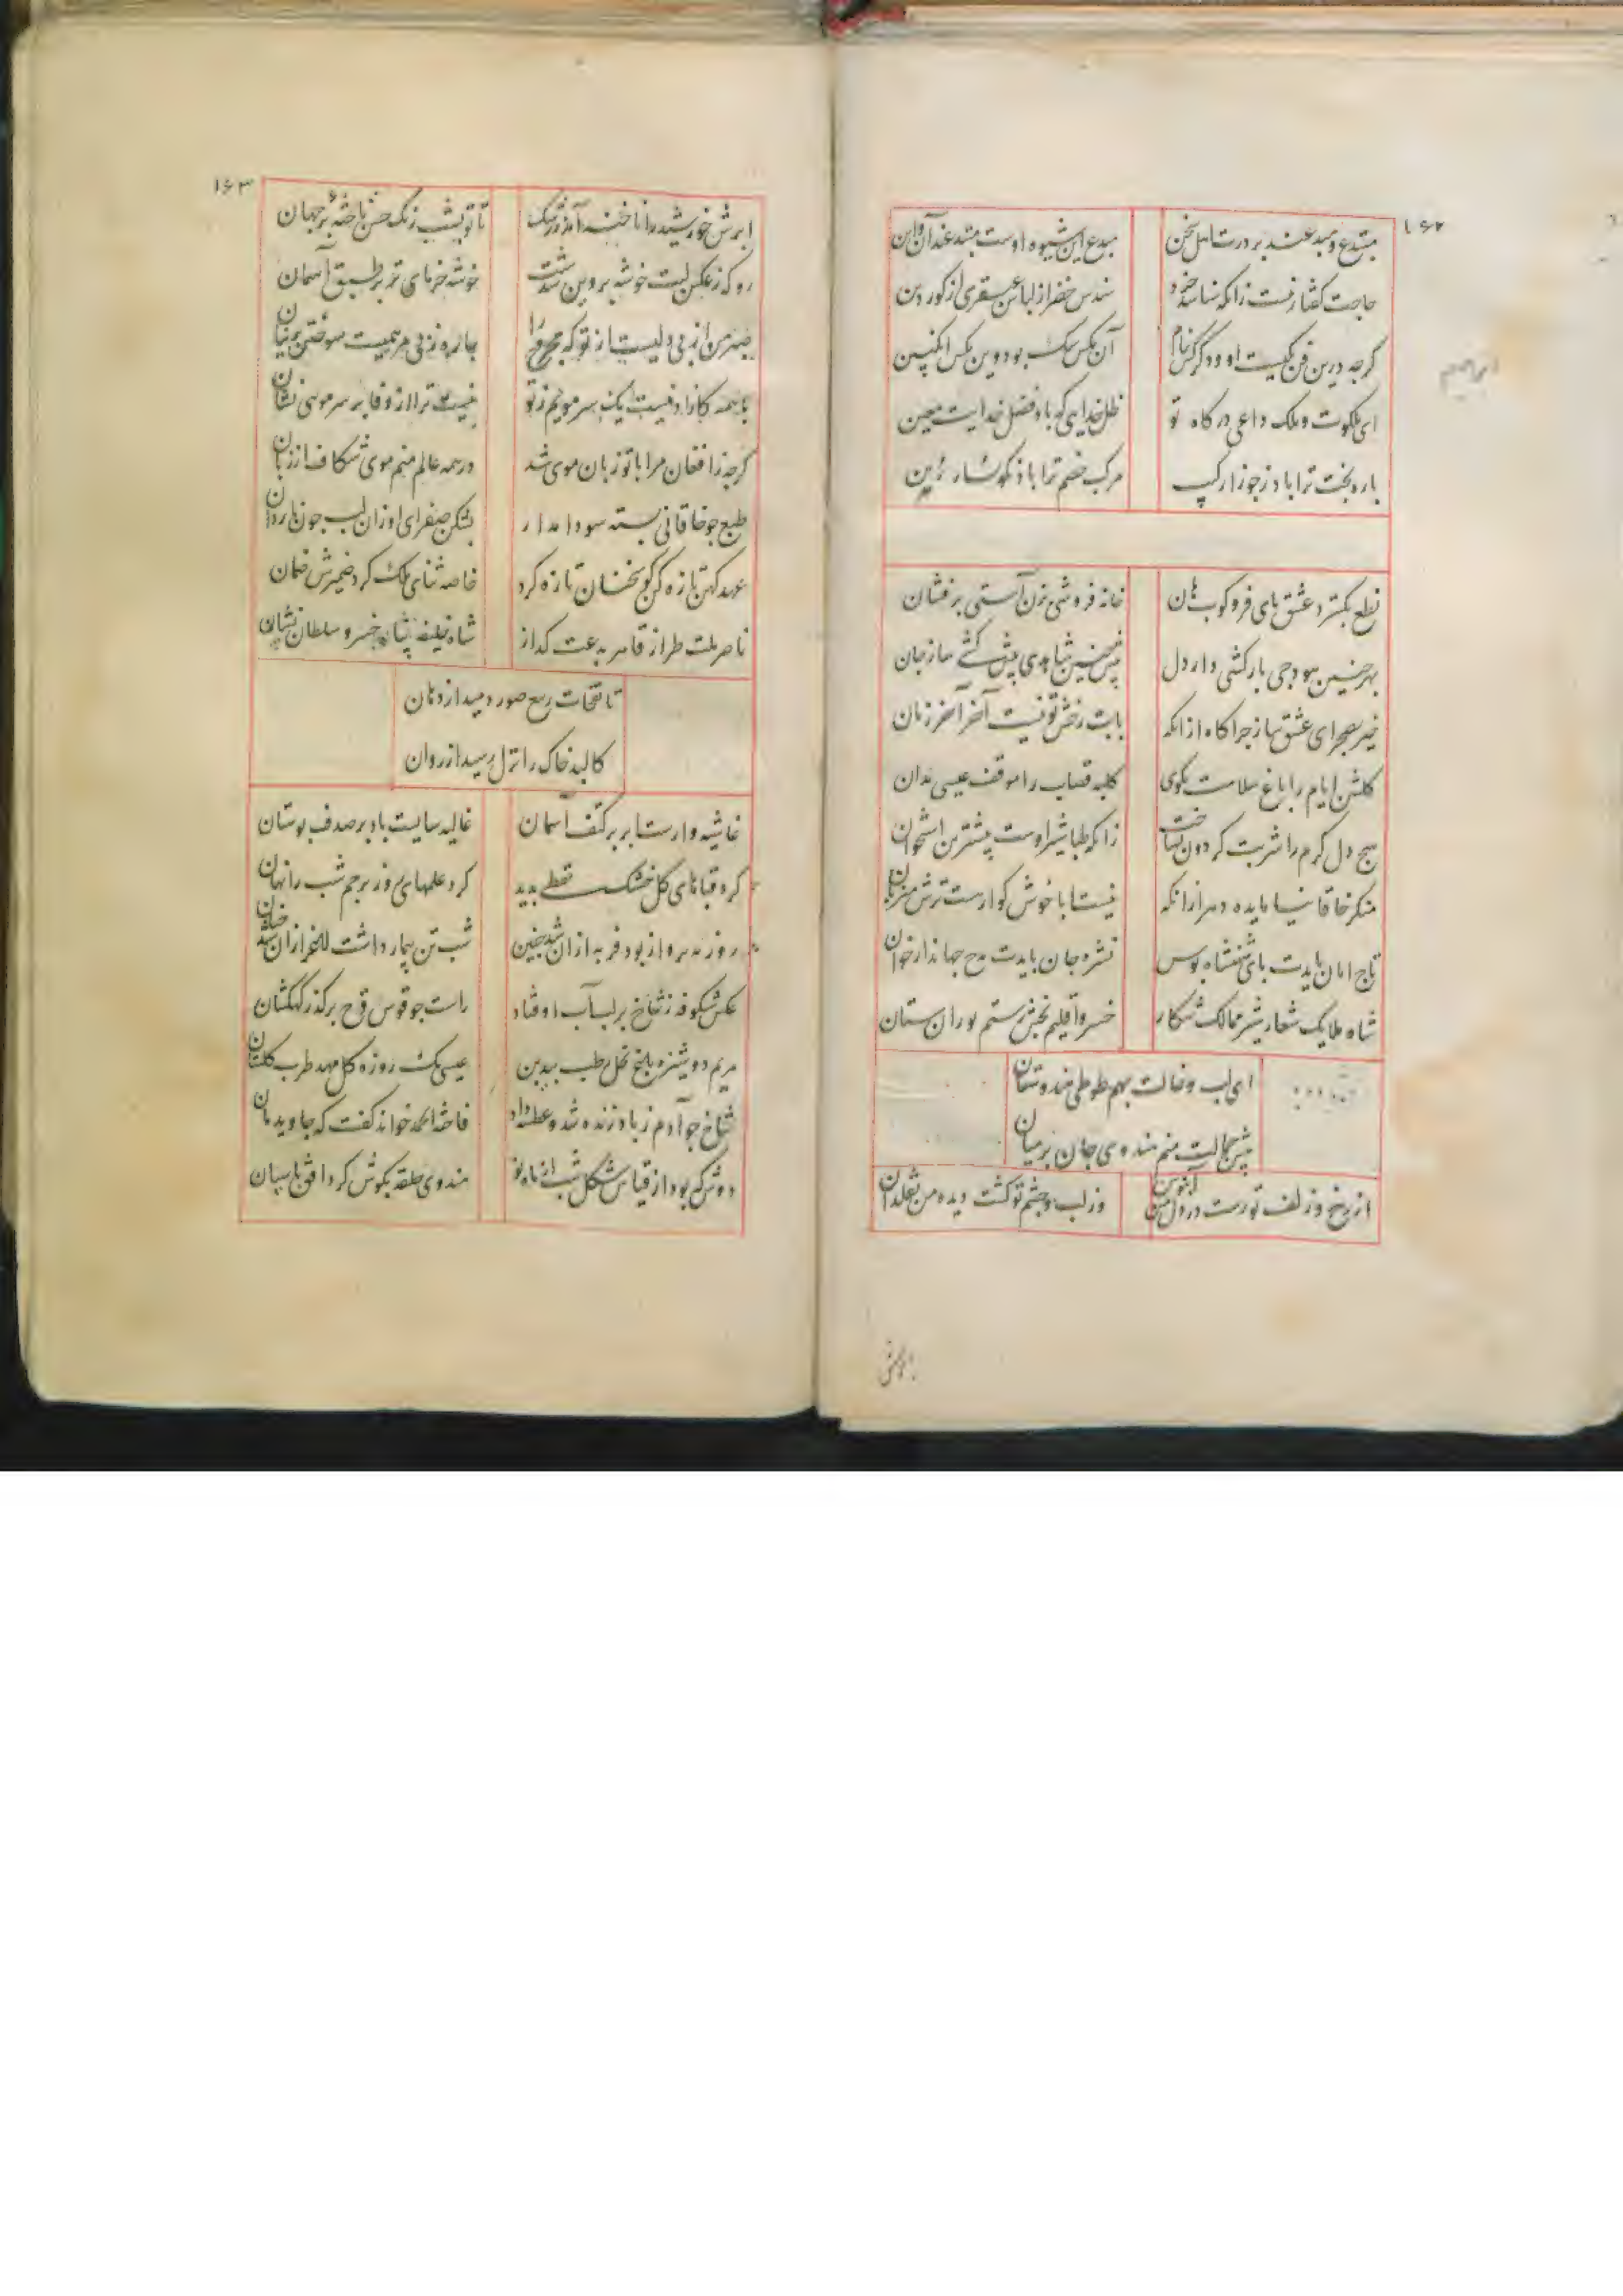 ۱۶۲
مبتدع و مبدعند بر درت اهل سخن مبدع این شیوه اوست مبتدعند آن و این
حاجت گفتار نیست زانکه شناسد خرد سندس خضر از لباس عبقری از کوردین
کرچه درین فن یکیست او و دکر کس بنام آن مکس سک بود وین مکس انکبین
ای ملکوت و ملک داعی درکاه تو ظل خدایی که باد فضل خدایت معین
باره بخت ترا باد ز جوزا رکیب مرکب خصم ترا باد نکوسار زین
نطع بکسترد عشق پای فرو کوب هان خانه فروشی بزن آستی برفشان
بهر چنین هودجی بارکشی دار دل پیش چنین شاهدی پیشکشی ساز جان
خیز بصحرای عشق ساز چراکاه از آنکه بابت رخش تو نیست آخر آخر زمان
کلشن ایام را باغ سلامت مکوی کلبه قصاب را موقف عیسی مدان
هیچ دل کرم را شربت کردون نساخت زانکه طباشیر اوست بیشترین استخوان
منکر خاقانیا مایده دهر از آنکه نیست ابا خوش کوار هست ترش میزبان
تاج امان بایدت پای شهنشاه بوس نشره جان بایدت مدح جهاندار خوان
شاه ملایک شعار شیر ممالک شکار خسرو اقلیم بخش رستم توران ستان
ای لب و خالت بهم طوطی هندوستان
پیش جمالت منم هندوی جان بر میان
از رخ و زلف تو رست در دل من آبنوس وز لب و چشم تو کشت دیده من
ابرش
۱۶۳
ابرش خورشید را ناخنه آمد ز رشک تا تو بشب رنک حسن تاخته ای بر جهان
رو که ز عکس لبت خوشه پروین شدست خوشه خرمای تر بر طبق آسمان
صبر من از بی دلیست از تو که مجروح را چاره ز بی مرهمیست سوختن پرنیان
با همه کازاد نیست یک سر مویم ز تو نیست ترا از وفا بر سر مویی نشان
کرچه ز افغان مرا با تو زبان موی شد در همه عالم منم موی شکاف از زبان
طبع چو خاقانی بسته سودا مدار بشکن صفرای او زان لب چون ناردان
عهد کهن تازه کن کو سخنان تازه کرد خاصه ثنای ملک کرد ضمیرش ضمان
ناصر ملت طراز قاهر بدعت کداز شاه خلیفه پناه خسرو سلطان نشان
تا نفحات ربیع صور دمید از دهان
کالبد خاک را نزل رسید از روان
غاشیه دارست ابر بر کتف آسمان غالیه سایست باد بر صدف بوستان
کرد قباهای کل خشتک نقطی بدید کرد علمهای روز پرچم شب را نهان
روز بپرواز بود فربه از آن شد چنین شب تن بیمار داشت لاغر از آن شد چنان
عکس شکوفه ز شاخ بر لب آب اوفتاد راست چو قوس قزح بر کذر کهکشان
مریم دوشیزه باغ نخل رطب بیدبن عیسی یک روزه کل مهد طرب کلستان
شاخ چو آدم ز باد زنده شد و عطسه داد فاخته الحمد خواند کفت که جاوید مان
دوش که بود از قیاس شکل شب از ماه نو هندوی حلقه بکوش کرد افق پاسبان